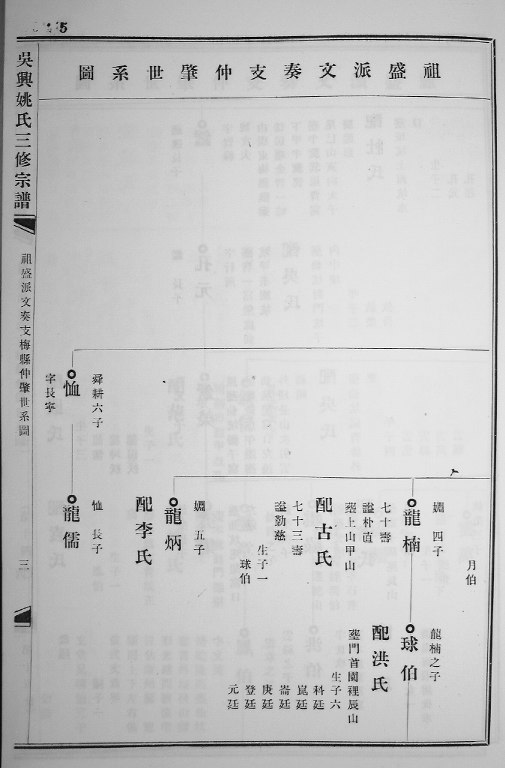 5
祖盛派文奏支仲肇世系圖
月伯
嫺四子
龍楠
七十壽
諡朴直
塟上山甲山
配古氏
七十三壽
諡勤慈
生子一
球伯
嫺五子
龍炳
配李氏
舜耕六子
恤
字長寧
恤長子
龍儒
龍楠之子
球伯
配洪氏
塟門首園裡辰山
生子六
科廷
崑廷
崙廷
庚廷
登廷
元廷
吳興姚氏三修宗譜
祖盛派文奏支梅縣仲肇世系圖
三